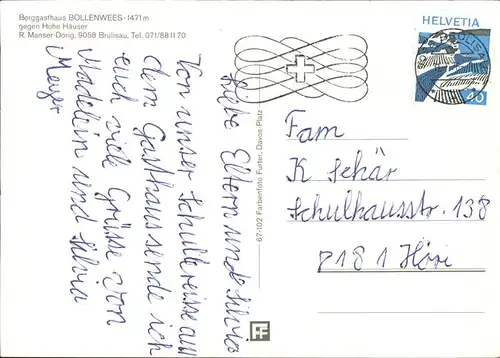 Berggasthaus BOLLENWEES - 1471 m
gegen Hohe Häuser
R. Manser-Dörig, 9058 Brülisau, Tel. 071/88 11 70
Liebe Eltern und Silvia.
Von unser Schulereise auf
dem Gasthaus sende ich
euch viele Grüsse von
Madelein und Silvia
Meyer
67-102 Farbenfoto Furter, Davos-Platz
HELVETIA
40
Fam
K Schär
Schulhausstr. 138
8181 Höri